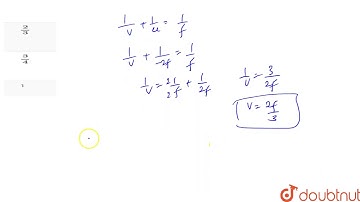 2/3
3/4
1/v + 1/u = 1/f
1/v + 1/-2f = 1/f
1/v = 2/2f + 1/2f
1/v = 3/2f
v = 2f/3
doubtnut